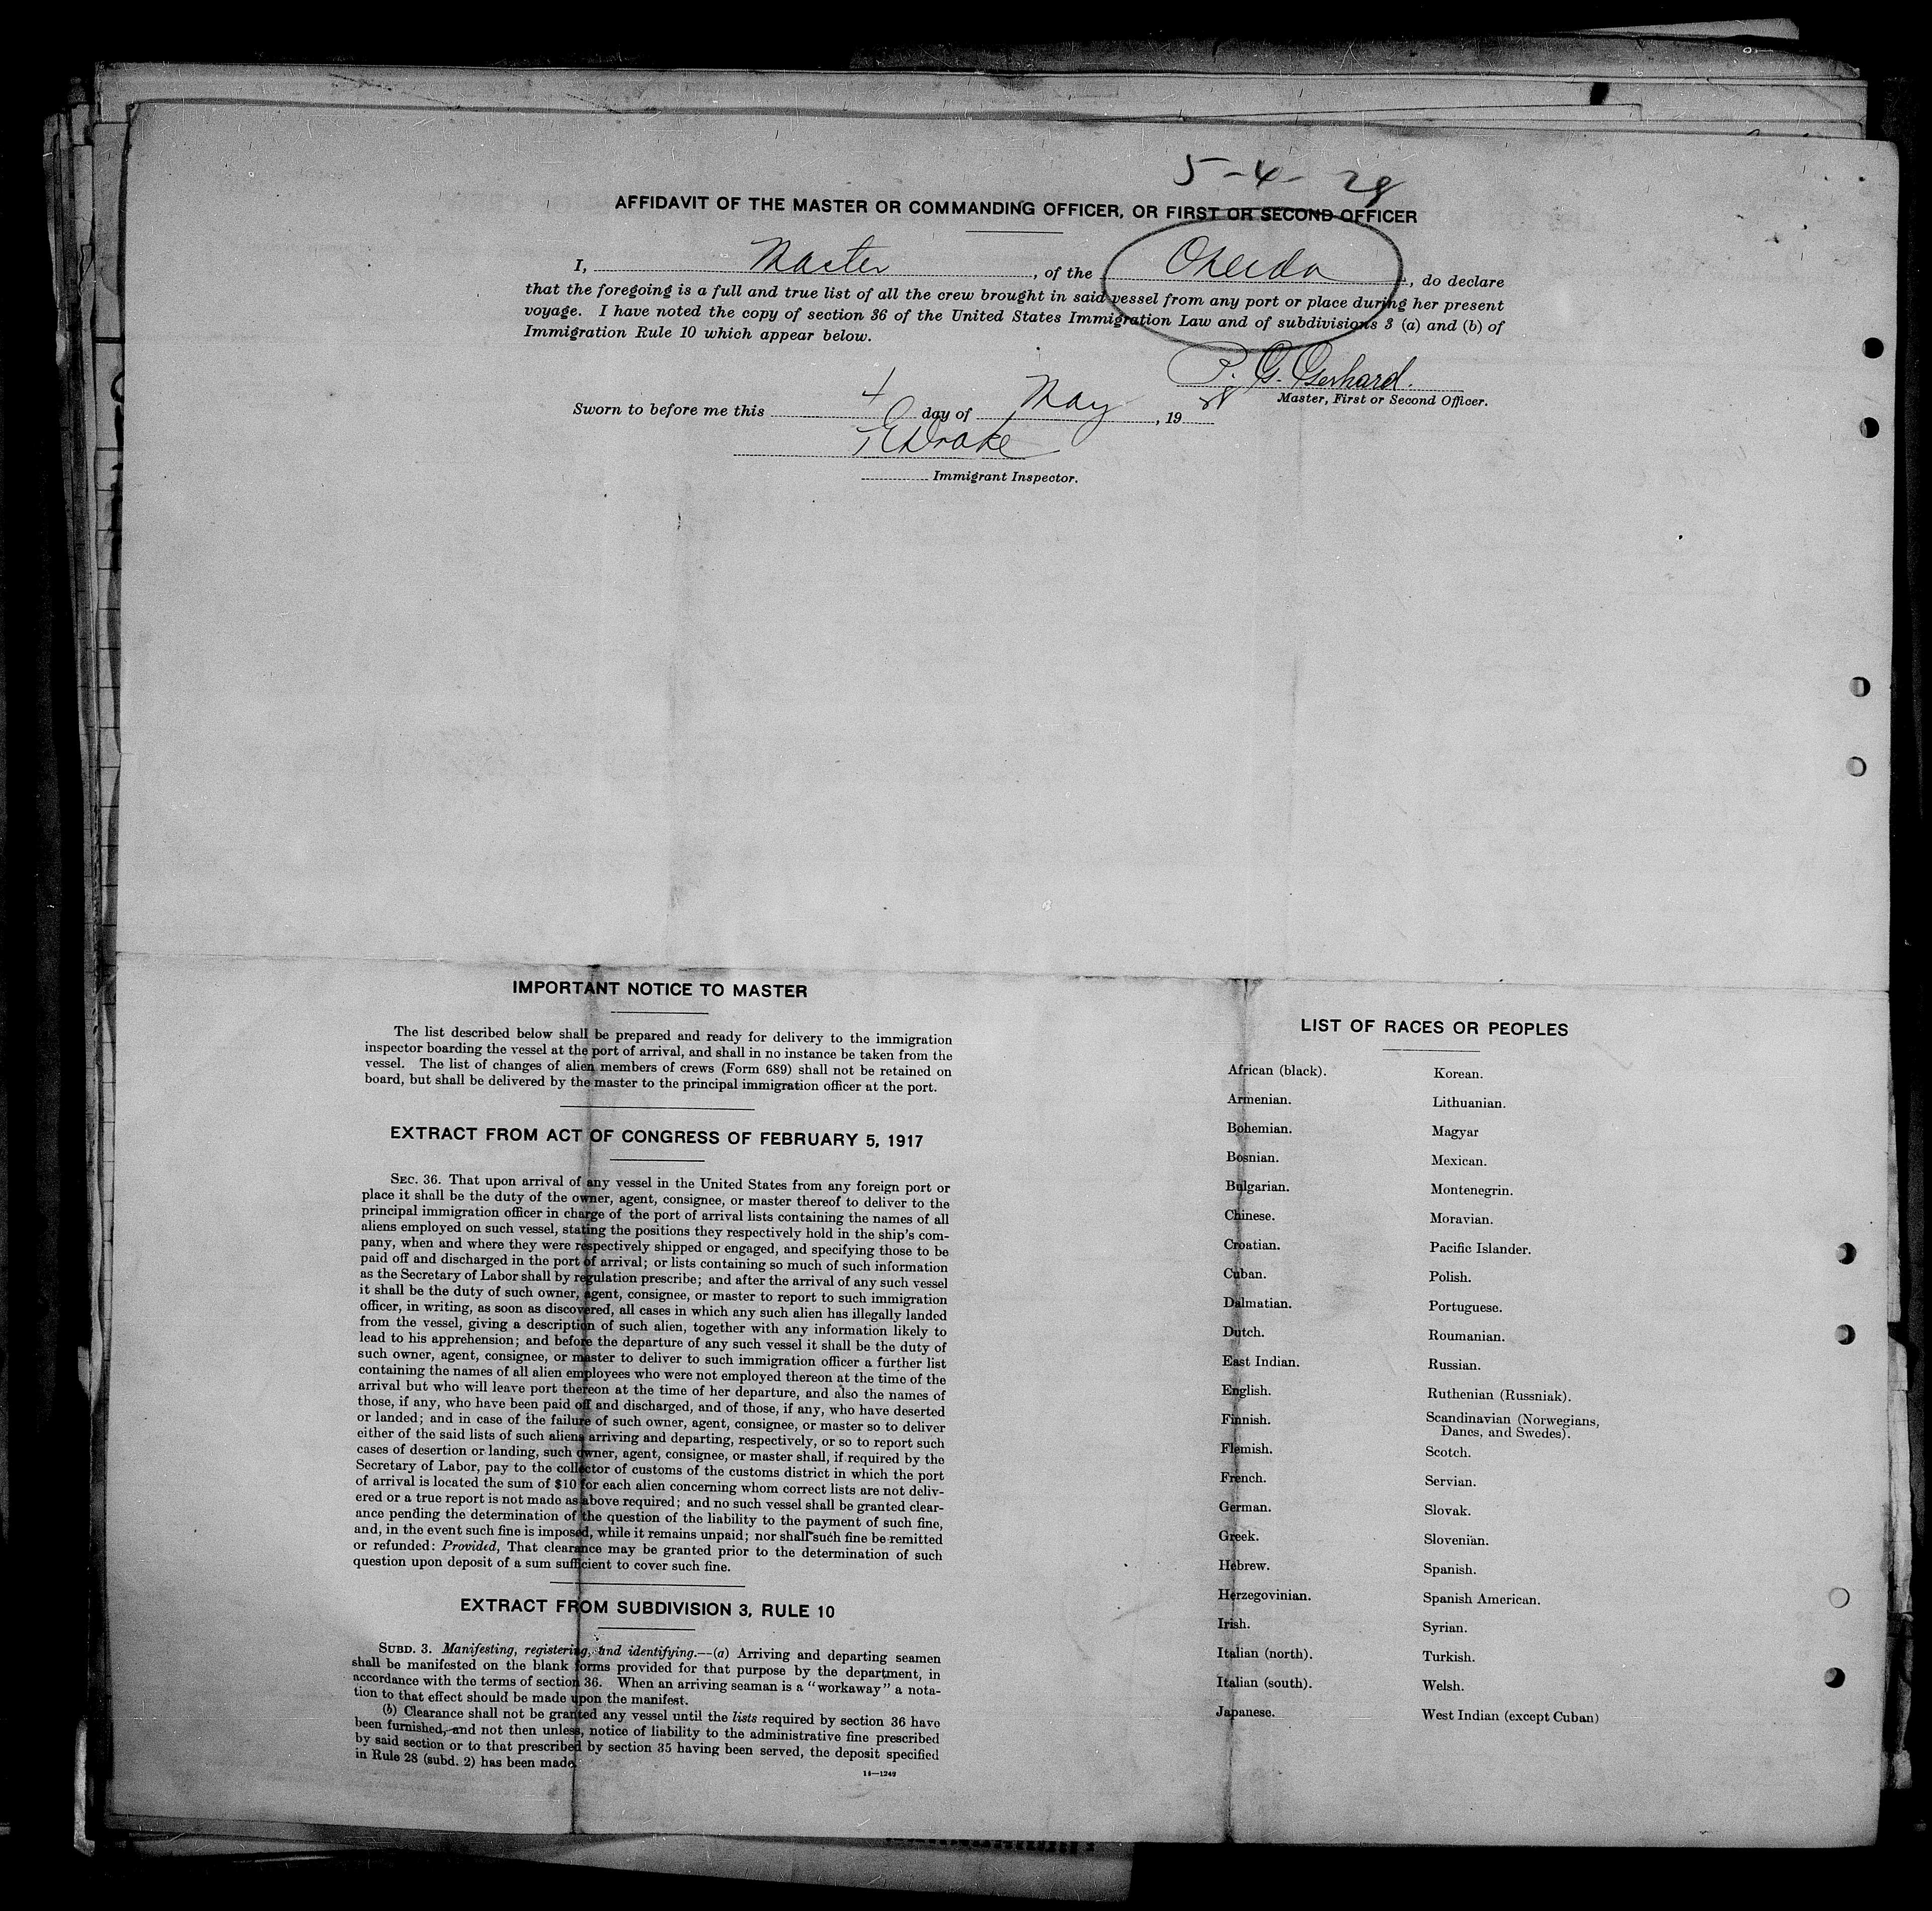 5-4-28
AFFIDAVIT OF THE MASTER OR COMMANDING OFFICER, OR FIRST OR SECOND OFFICER
I, Master, of the Oneida, do declare
that the foregoing is a full and true list of all the crew brought in said vessel from any port or place during her present
voyage. I have noted the copy of section 36 of the United States Immigration Law and of subdivisions 3 (a) and (b) of
Immigration Rule 10 which appear below.
P. G. Gerhard.
Master, First or Second Officer.
Sworn to before me this 4 day of May, 1928
Drake
Immigrant Inspector.
IMPORTANT NOTICE TO MASTER
The list described below shall be prepared and ready for delivery to the immigration
inspector boarding the vessel at the port of arrival, and shall in no instance be taken from the
vessel. The list of changes of alien members of crews (Form 689) shall not be retained on
board, but shall be delivered by the master to the principal immigration officer at the port.
EXTRACT FROM ACT OF CONGRESS OF FEBRUARY 5, 1917
SEC. 36. That upon arrival of any vessel in the United States from any foreign port or
place it shall be the duty of the owner, agent, consignee, or master thereof to deliver to the
principal immigration officer in charge of the port of arrival lists containing the names of all
aliens employed on such vessel, stating the positions they respectively hold in the ship's com-
pany, when and where they were respectively shipped or engaged, and specifying those to be
paid off and discharged in the port of arrival; or lists containing so much of such information
as the Secretary of Labor shall by regulation prescribe; and after the arrival of any such vessel
it shall be the duty of such owner, agent, consignee, or master to report to such immigration
officer, in writing, as soon as discovered, all cases in which any such alien has illegally landed
from the vessel, giving a description of such alien, together with any information likely to
lead to his apprehension; and before the departure of any such vessel it shall be the duty of
such owner, agent, consignee, or master to deliver to such immigration officer a further list
containing the names of all alien employees who were not employed thereon at the time of the
arrival but who will leave port thereon at the time of her departure, and also the names of
those, if any, who have been paid off and discharged, and of those, if any, who have deserted
or landed; and in case of the failure of such owner, agent, consignee, or master so to deliver
either of the said lists of such aliens arriving and departing, respectively, or so to report such
cases of desertion or landing, such owner, agent, consignee, or master shall, if required by the
Secretary of Labor, pay to the collector of customs of the customs district in which the port
of arrival is located the sum of $10 for each alien concerning whom correct lists are not deliv-
ered or a true report is not made as above required; and no such vessel shall be granted clear-
ance pending the determination of the question of the liability to the payment of such fine,
and, in the event such fine is imposed, while it remains unpaid; nor shall such fine be remitted
or refunded: Provided, That clearance may be granted prior to the determination of such
question upon deposit of a sum sufficient to cover such fine.
EXTRACT FROM SUBDIVISION 3, RULE 10
SUBD. 3. Manifesting, registering, and identifying.—(a) Arriving and departing seamen
shall be manifested on the blank forms provided for that purpose by the department, in
accordance with the terms of section 36. When an arriving seaman is a "workaway" a nota-
tion to that effect should be made upon the manifest.
(b) Clearance shall not be granted any vessel until the lists required by section 36 have
been furnished, and not then unless, notice of liability to the administrative fine prescribed
by said section or to that prescribed by section 35 having been served, the deposit specified
in Rule 28 (subd. 2) has been made.
14—1249
LIST OF RACES OR PEOPLES
African (black).
Armenian.
Bohemian.
Bosnian.
Bulgarian.
Chinese.
Croatian.
Cuban.
Dalmatian.
Dutch.
East Indian.
English.
Finnish.
Flemish.
French.
German.
Greek.
Hebrew.
Herzegovinian.
Irish.
Italian (north).
Italian (south).
Japanese.
Korean.
Lithuanian.
Magyar
Mexican.
Montenegrin.
Moravian.
Pacific Islander.
Polish.
Portuguese.
Roumanian.
Russian.
Ruthenian (Russniak).
Scandinavian (Norwegians,
Danes, and Swedes).
Scotch.
Servian.
Slovak.
Slovenian.
Spanish.
Spanish American.
Syrian.
Turkish.
Welsh.
West Indian (except Cuban)